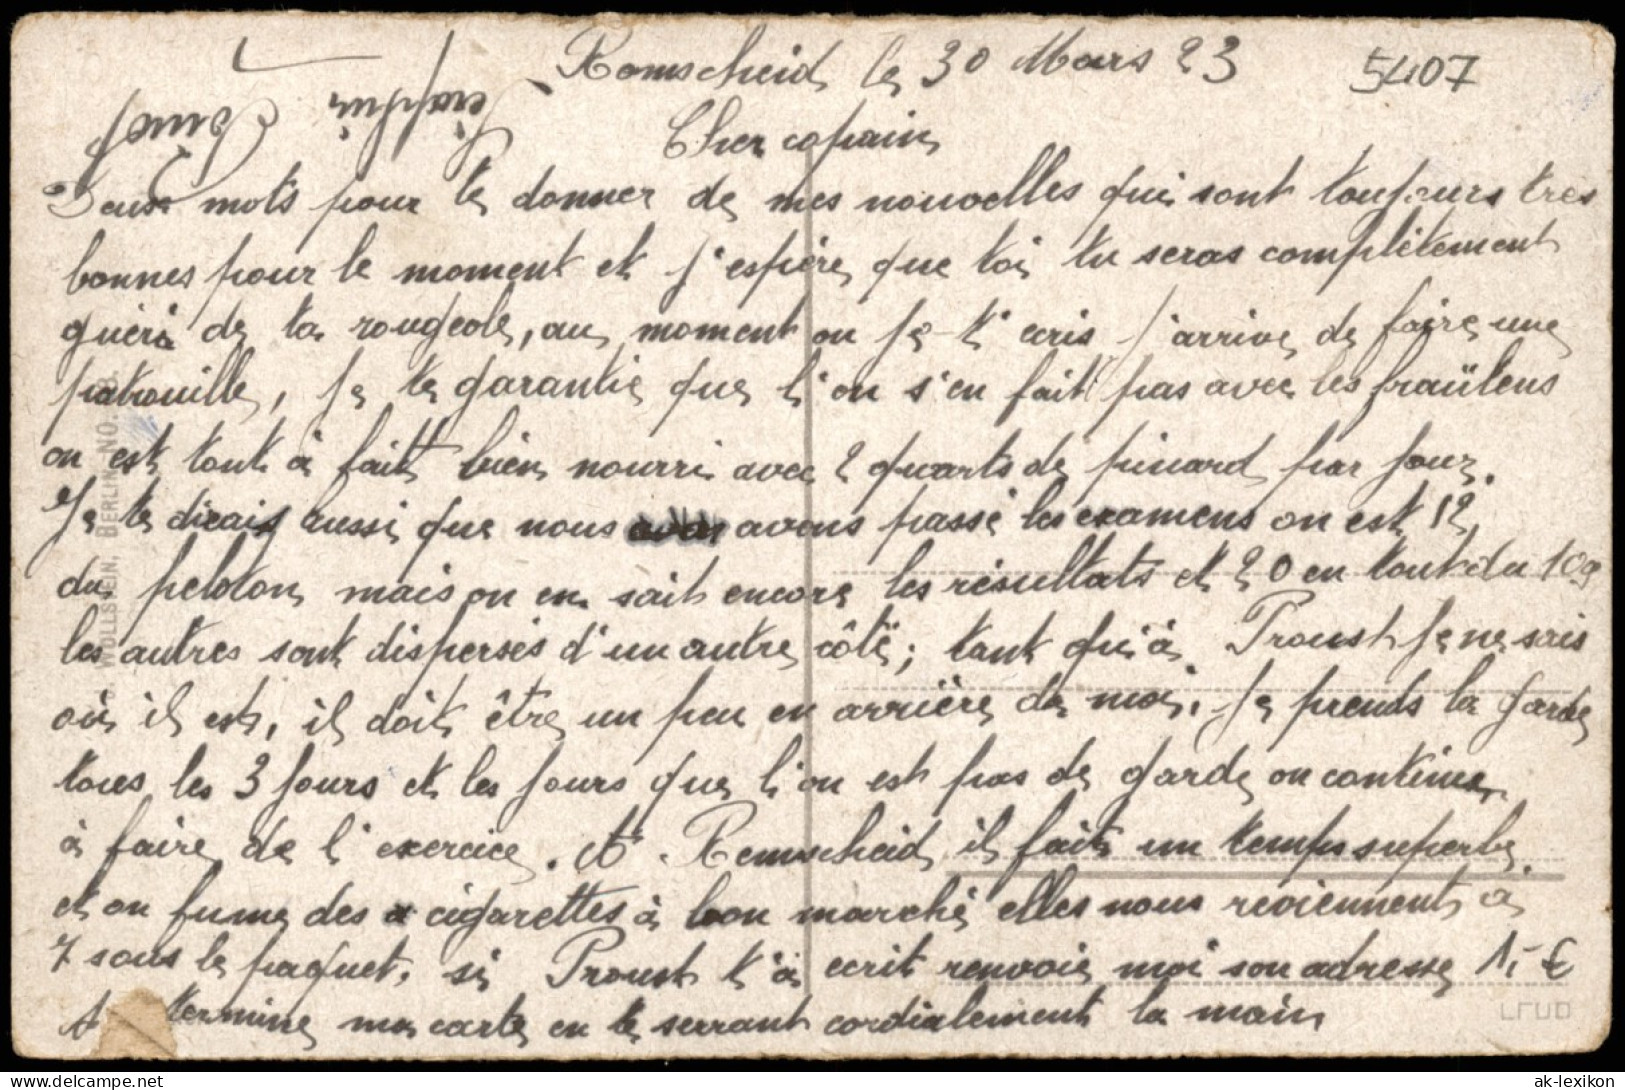 Remscheid le 30 Mars 23
5407
Cher copain
Deux mots pour te donner de mes nouvelles qui sont toujours très
bonnes pour le moment et j'espère que toi tu seras complètement
guéri de ta rougeole, au moment ou je t'ecris j'arrive de faire une
patrouille, je te garantie que l'on s'en fait pas avec les fraülens
on est tout à fait bien nourri avec 2 quarts de pinard par jour.
Je te dirais aussi que nous avons passé les examens on est 12
du peloton mais on en sait encore les résultats et 20 en tout du 109
les autres sont dispersés d'un autre côté; tant qu'à Proust je ne sais
où il est, il doit être un peu en arrière de moi. Je prends la garde
tous les 3 jours et les jours que l'on est pas de garde on continue
à faire de l'exercice. A Remscheid il fait un temps superbe
et on fume des cigarettes à bon marché elles nous reviennent à
7 sous le paquet. si Proust t'à ecrit renvoie moi son adresse
1,- €
termine ma carte en te serrant cordialement la main
LFUD
WOLLSTEIN, BERLIN NO.
ak-lexikon